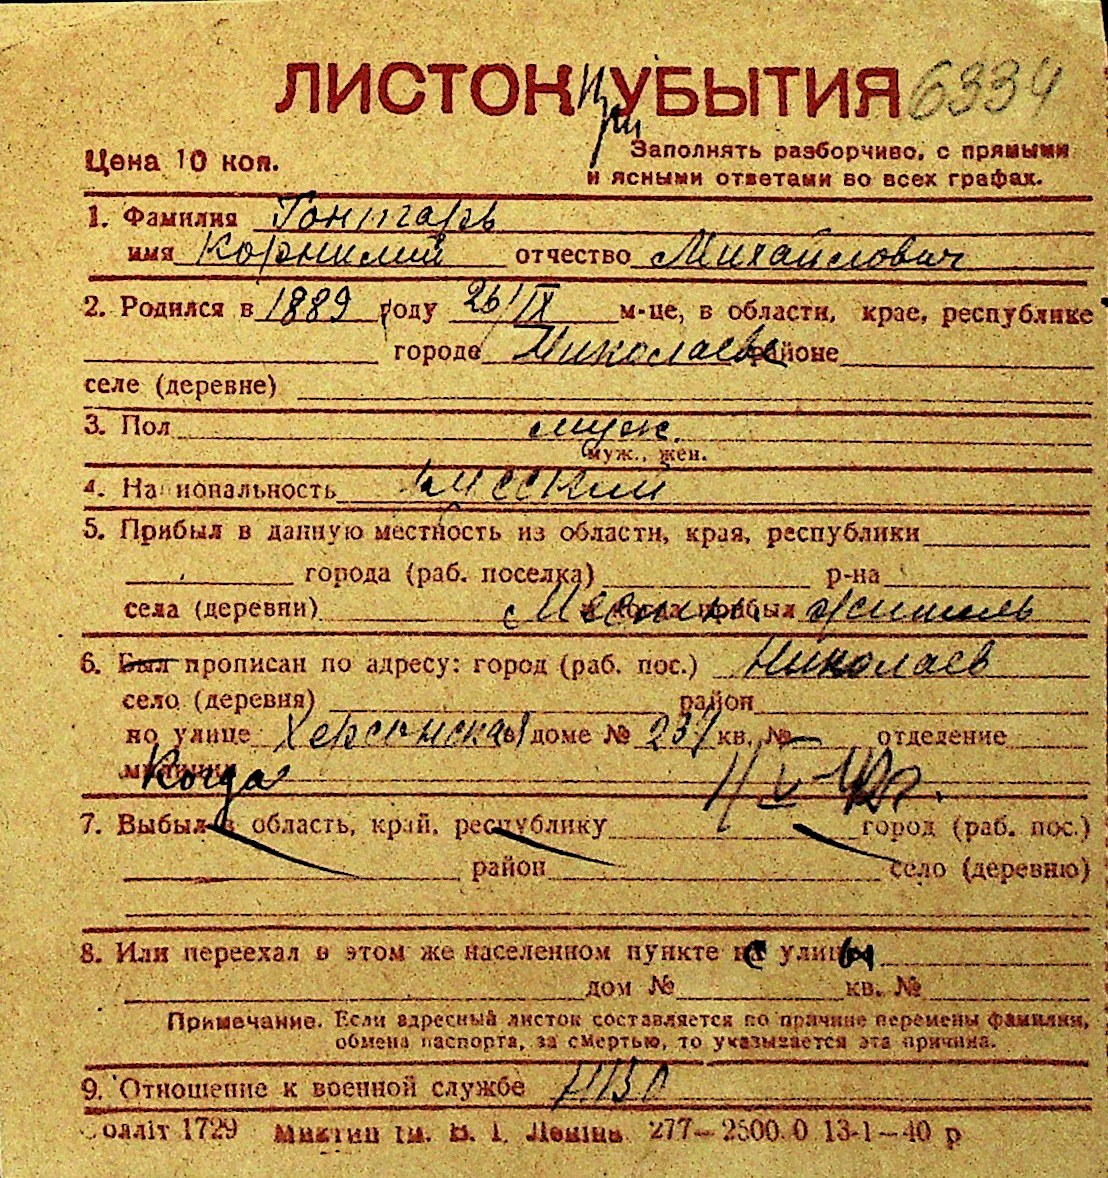 ЛИСТОК При УБЫТИЯ 6334
Цена 10 коп.
Заполнять разборчиво, с прямыми
и ясными ответами во всех графах.
1. Фамилия Гонтарь
имя Корнилий отчество Михайлович
2. Родился в 1889 году 26/IX м-це, в области, крае, республике
городе Николаеве районе
селе (деревне)
3. Пол муж.
муж., жен.
4. Национальность русский
5. Прибыл в данную местность из области, края, республики
города (раб. поселка) р-на
села (деревни) Местный житель
6. Был прописан по адресу: город (раб. пос.) Николаев
село (деревня) район
по улице Херсонская в доме № 237 кв. № отделение
милиции Когда 11/V-40г.
7. Выбыл в область, край, республику город (раб. пос.)
район село (деревню)
8. Или переехал в этом же населенном пункте с улицы
дом № кв. №
Примечание. Если адресный листок составляется по причине перемены фамилии,
обмена паспорта, за смертью, то указывается эта причина.
9. Отношение к военной службе
1729 ім. В. І. Леніна 277—2500.0 13-1—40 р